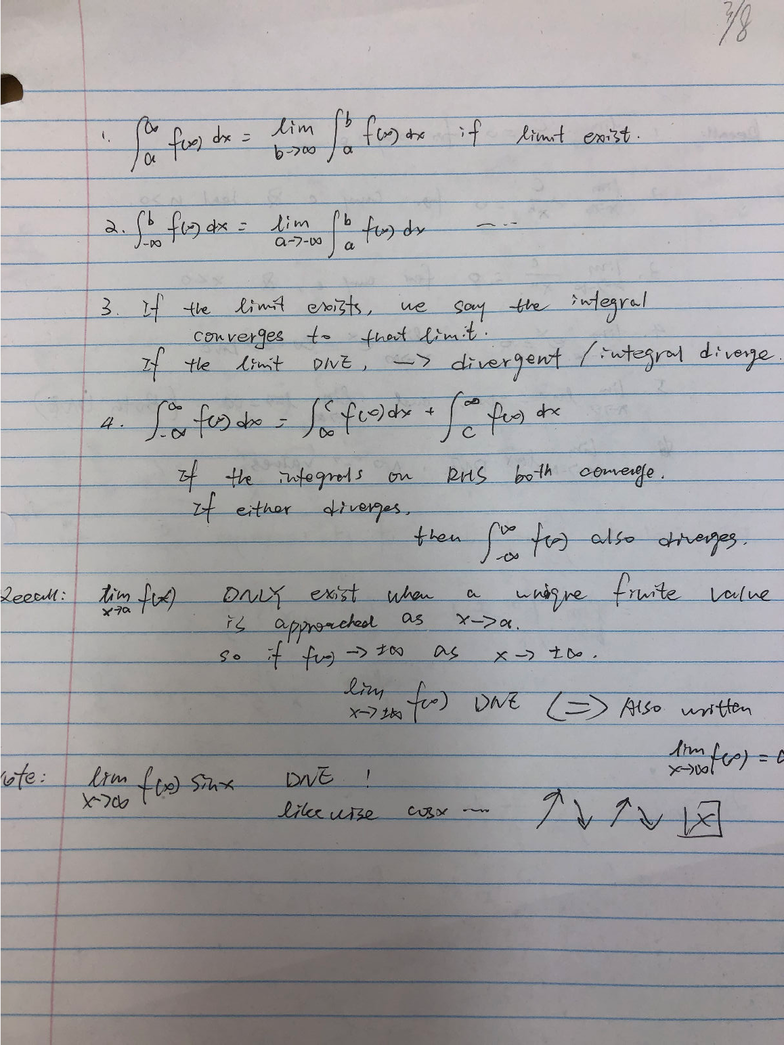 3/8
1. ∫_a^∞ f(x) dx = lim_{b→∞} ∫_a^b f(x) dx if limit exist.
2. ∫_{-∞}^b f(x) dx = lim_{a→-∞} ∫_a^b f(x) dx ....
3. If the limit exists, we say the integral
converges to that limit.
If the limit DNE, —> divergent / integral diverge.
4. ∫_{-∞}^∞ f(x) dx = ∫_∞^c f(x) dx + ∫_c^∞ f(x) dx
If the integrals on RHS both converge.
If either diverges,
then ∫_{-∞}^∞ f(x) also diverges.
Recall: lim_{x→a} f(x) ONLY exist when a unique finite value
is approached as x→a.
so if f(x) → ±∞ as x → ±∞.
lim_{x→±∞} f(x) DNE (=> Also written
lim_{x→∞} f(x) =
Note: lim_{x→∞} f(x) sinx DNE !
likewise cosx ... ↗↘↗↘ x